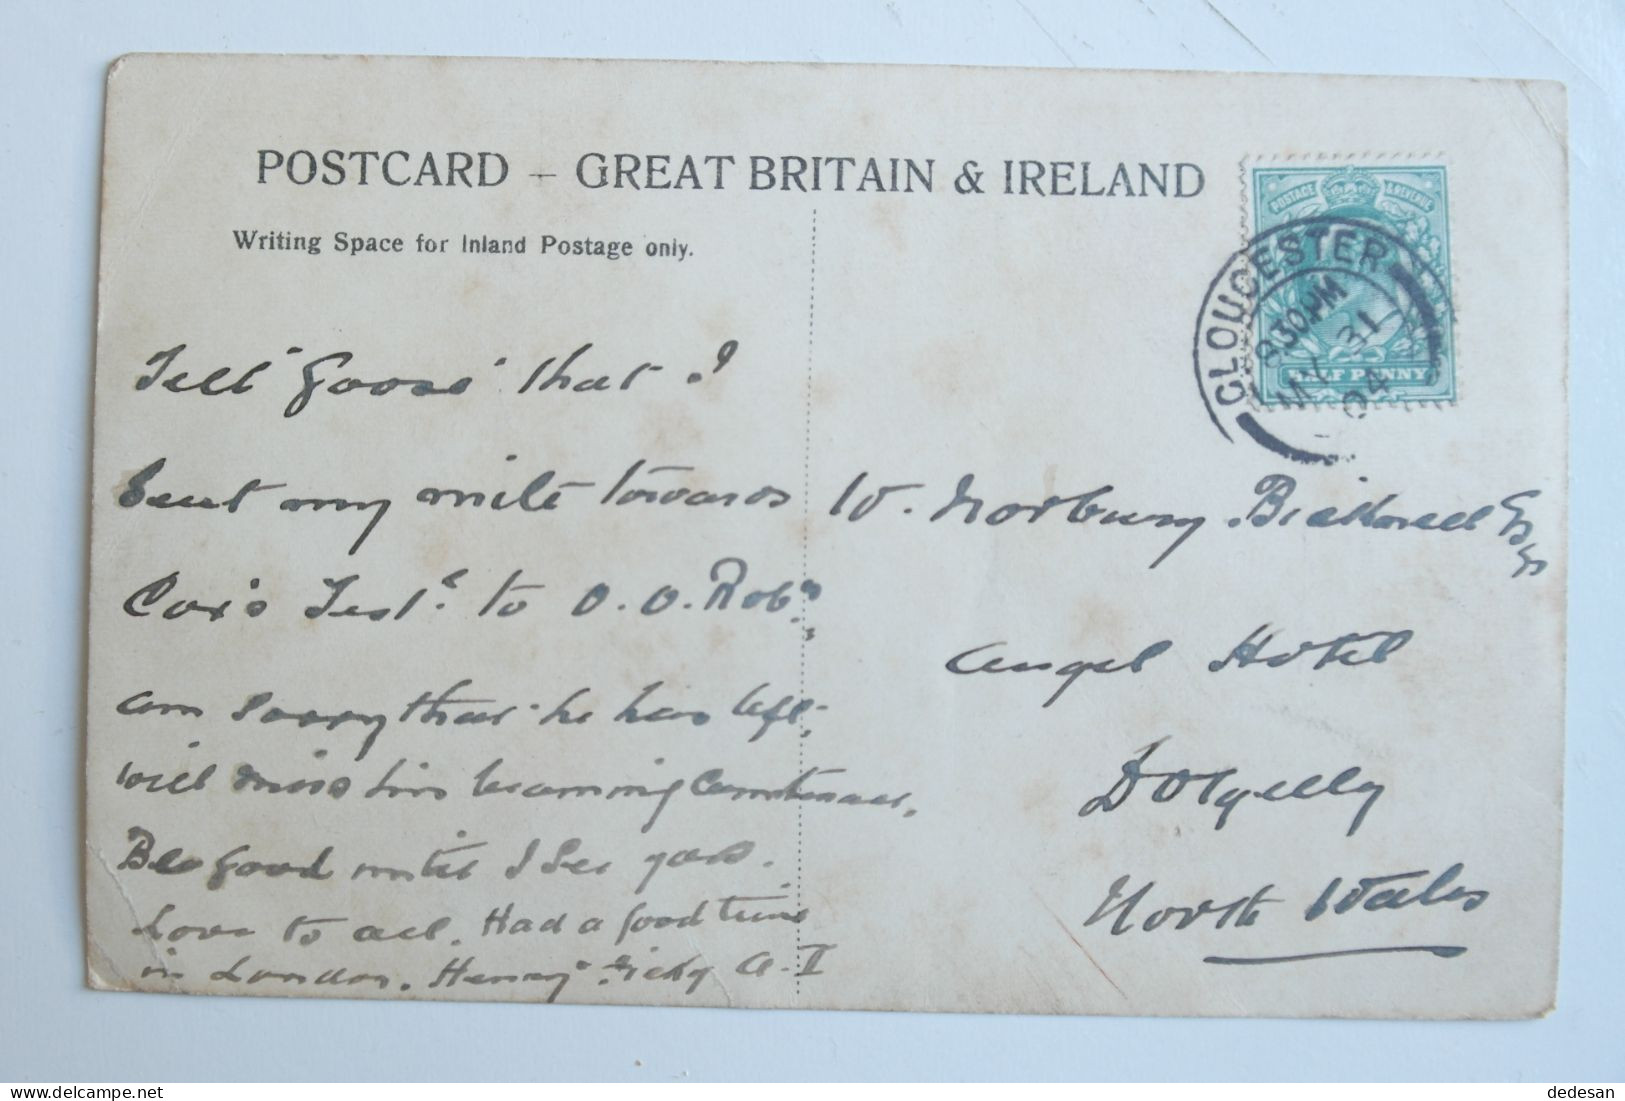 POSTCARD – GREAT BRITAIN & IRELAND
Writing Space for Inland Postage only.
POSTAGE & REVENUE
HALF PENNY
GLOUCESTER
8.30 PM
MY 31
04
Tell "Goose" that I
sent my mite towards
Cox's Testl. to O.O. Robn,
am sorry that he has left,
will miss him beaming
Be good until I see you.
Love to all. Had a good time
in London. Henry A.I
W. Norbury Bicknell Esq
Angel Hotel
Dolgelly
North Wales
dedesan